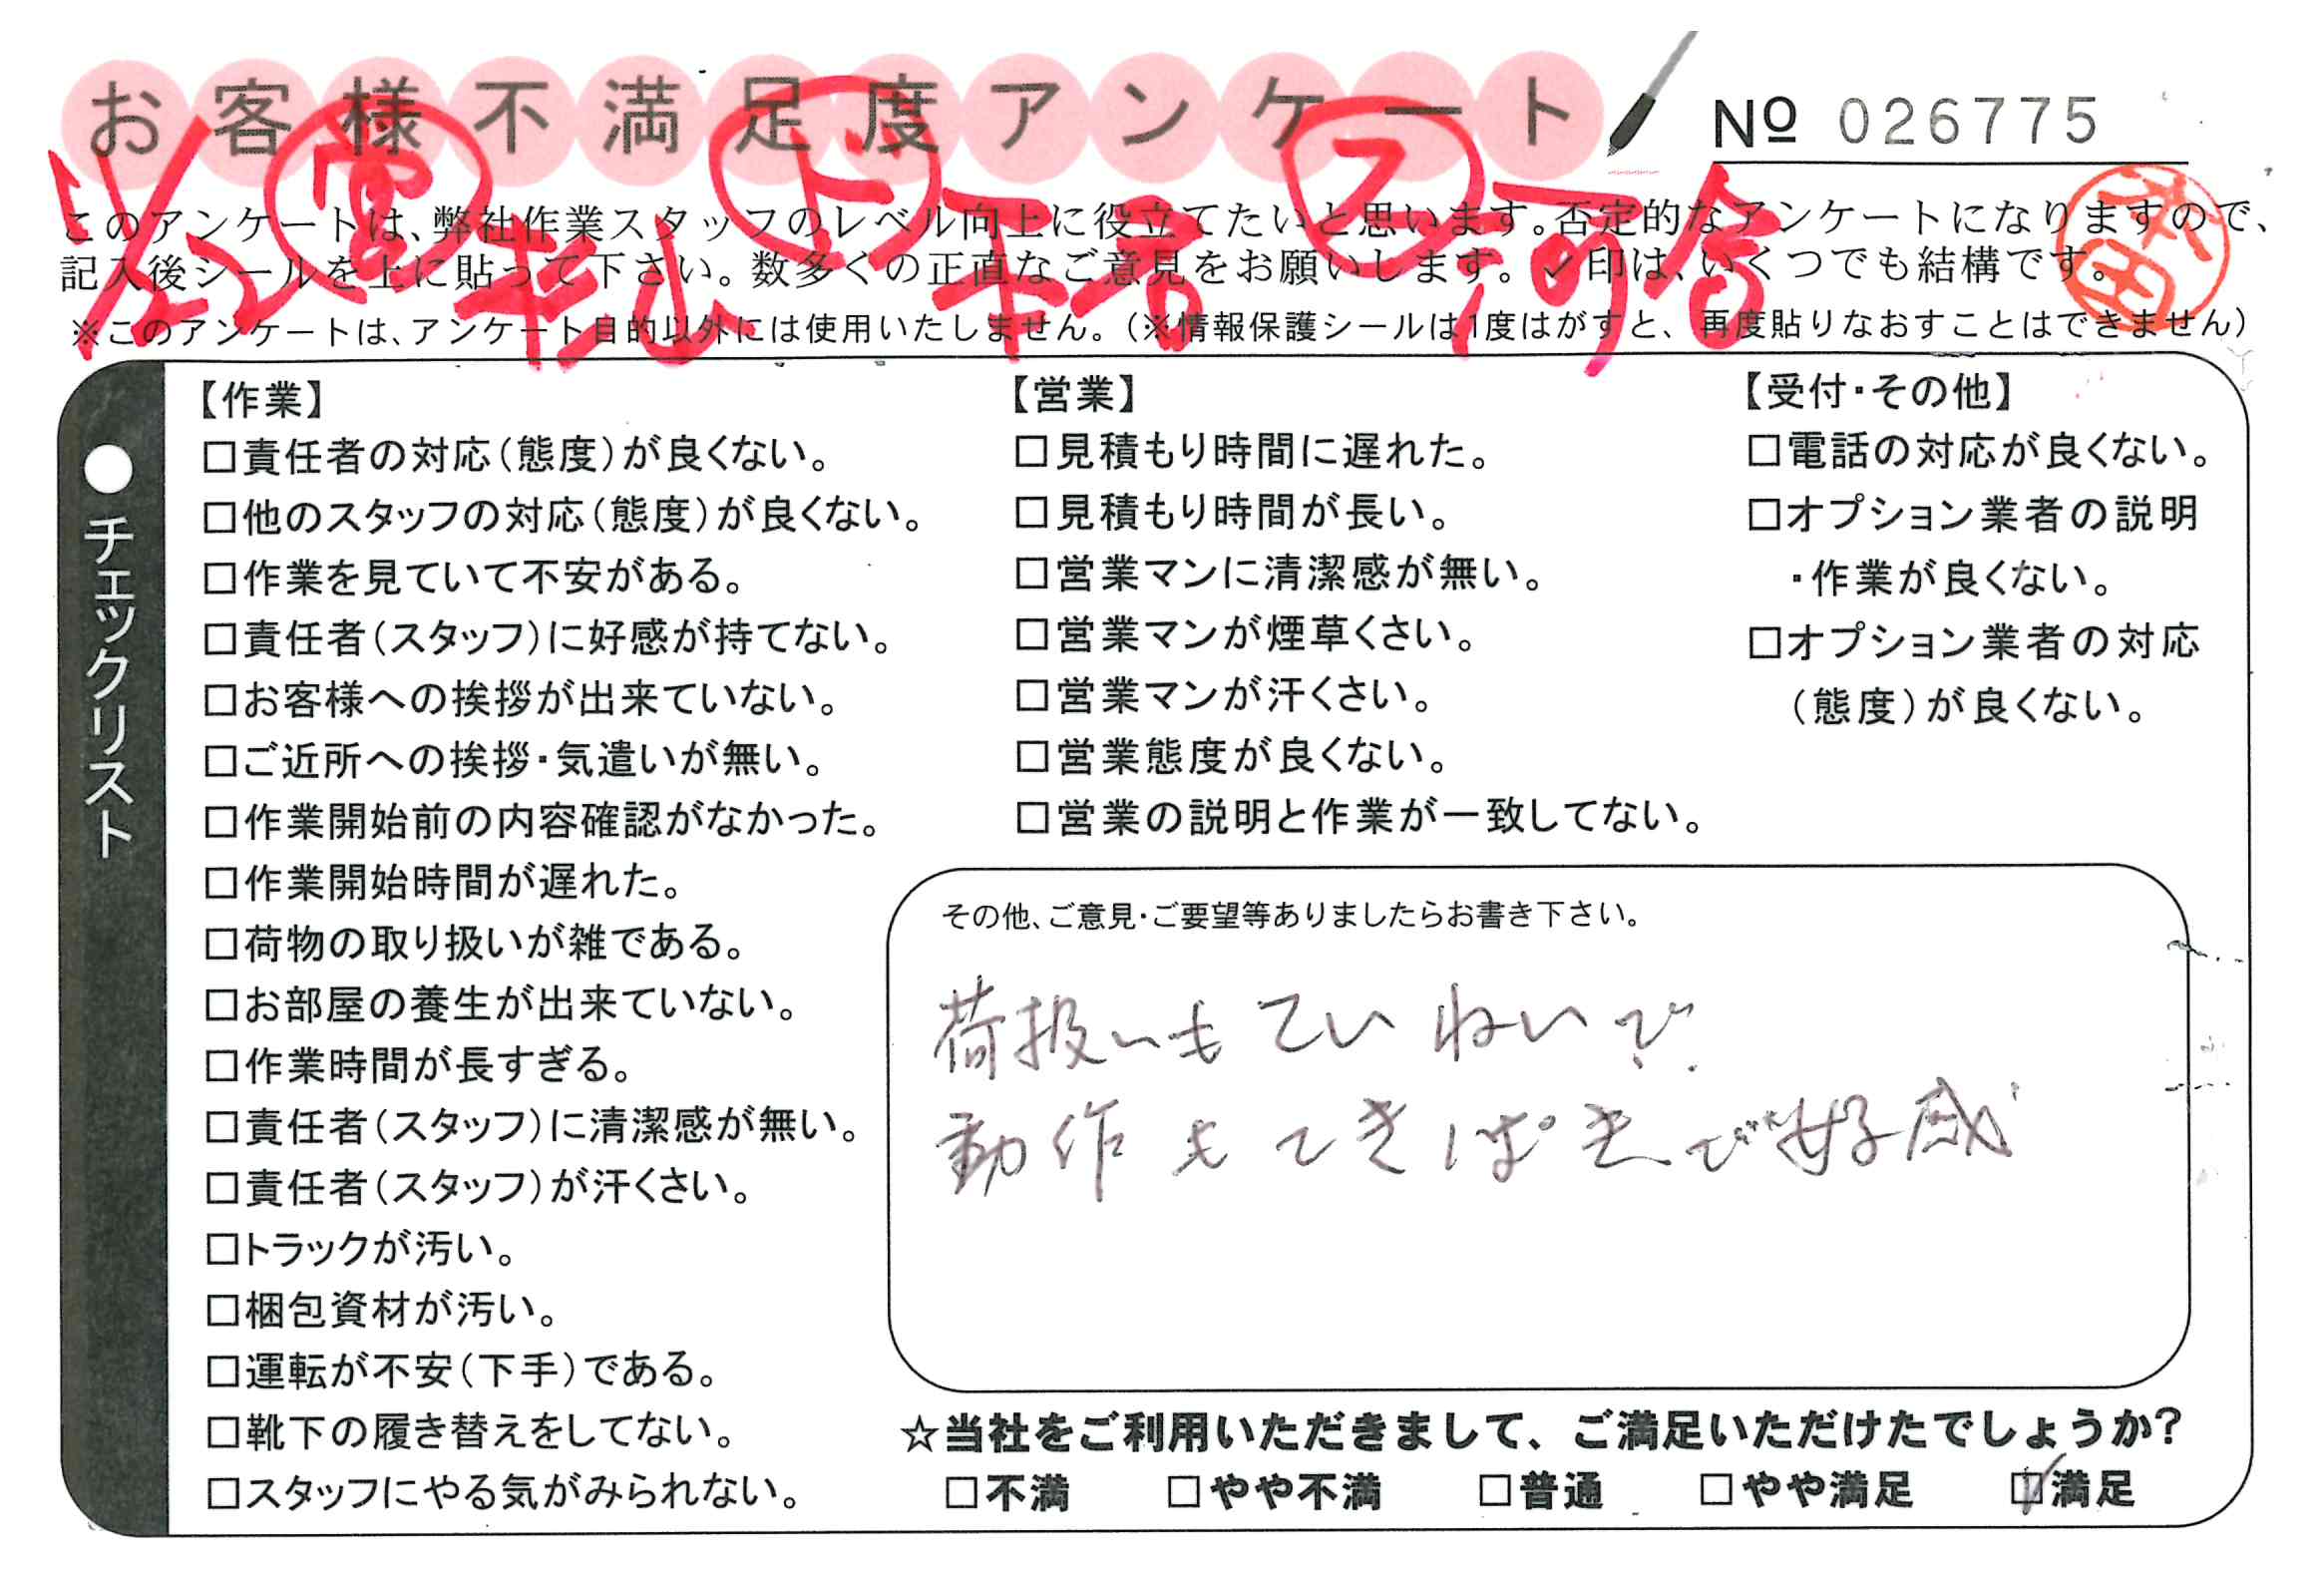 お客様不満足度アンケート
Nº 026775
1/22 営 杉山 ド 本岩 ス 河合
本田
このアンケートは、弊社作業スタッフのレベル向上に役立てたいと思います。否定的なアンケートになりますので、
記入後シールを上に貼って下さい。数多くの正直なご意見をお願いします。✓印は、いくつでも結構です。
※このアンケートは、アンケート目的以外には使用いたしません。(※情報保護シールは1度はがすと、再度貼りなおすことはできません)
●チェックリスト
【作業】
□責任者の対応(態度)が良くない。
□他のスタッフの対応(態度)が良くない。
□作業を見ていて不安がある。
□責任者(スタッフ)に好感が持てない。
□お客様への挨拶が出来ていない。
□ご近所への挨拶・気遣いが無い。
□作業開始前の内容確認がなかった。
□作業開始時間が遅れた。
□荷物の取り扱いが雑である。
□お部屋の養生が出来ていない。
□作業時間が長すぎる。
□責任者(スタッフ)に清潔感が無い。
□責任者(スタッフ)が汗くさい。
□トラックが汚い。
□梱包資材が汚い。
□運転が不安(下手)である。
□靴下の履き替えをしてない。
□スタッフにやる気がみられない。
【営業】
□見積もり時間に遅れた。
□見積もり時間が長い。
□営業マンに清潔感が無い。
□営業マンが煙草くさい。
□営業マンが汗くさい。
□営業態度が良くない。
□営業の説明と作業が一致してない。
【受付・その他】
□電話の対応が良くない。
□オプション業者の説明
・作業が良くない。
□オプション業者の対応
(態度)が良くない。
その他、ご意見・ご要望等ありましたらお書き下さい。
荷扱いもていねいで
動作もてきぱきで好感
☆当社をご利用いただきまして、ご満足いただけたでしょうか?
□不満 □やや不満 □普通 □やや満足 ☑満足